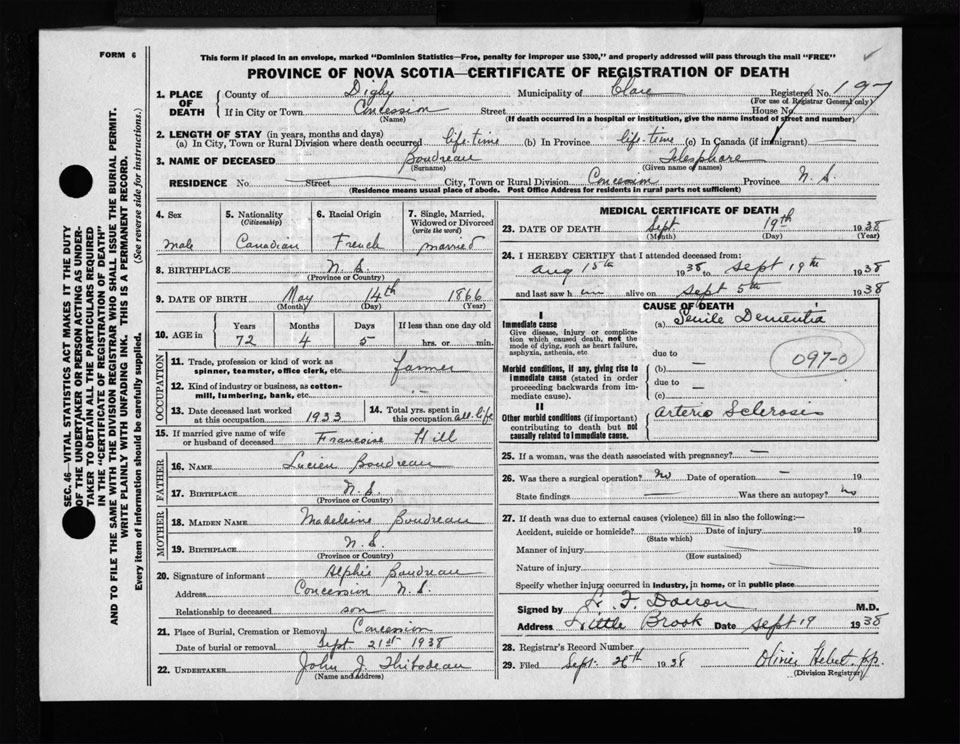 FORM 6
This form if placed in an envelope, marked "Dominion Statistics—Free, penalty for improper use $300," and properly addressed will pass through the mail "FREE"
PROVINCE OF NOVA SCOTIA—CERTIFICATE OF REGISTRATION OF DEATH
SEC. 46—VITAL STATISTICS ACT MAKES IT THE DUTY
OF THE UNDERTAKER OR PERSON ACTING AS UNDER-
TAKER TO OBTAIN ALL THE PARTICULARS REQUIRED
IN THE "CERTIFICATE OF REGISTRATION OF DEATH"
AND TO FILE THE SAME WITH THE DIVISION REGISTRAR WHO SHALL ISSUE THE BURIAL PERMIT.
WRITE PLAINLY WITH UNFADING INK. THIS IS A PERMANENT RECORD.
Every item of information should be carefully supplied. (See reverse side for instructions.)
1. PLACE OF DEATH County of Digby Municipality of Clare Registered No. 197
(For use of Registrar General only)
If in City or Town Concession Street House No.
(Name) (If death occurred in a hospital or institution, give the name instead of street and number)
2. LENGTH OF STAY (in years, months and days)
(a) In City, Town or Rural Division where death occurred life-time (b) In Province life-time (c) In Canada (if immigrant) —
3. NAME OF DECEASED Boudreau Telesphore
(Surname) (Given name or names)
RESIDENCE No. Street City, Town or Rural Division Concession Province N.S.
(Residence means usual place of abode. Post Office Address for residents in rural parts not sufficient)
4. Sex
male
5. Nationality
(Citizenship)
Canadian
6. Racial Origin
French
7. Single, Married,
Widowed or Divorced
(write the word)
married
8. BIRTHPLACE N.S.
(Province or Country)
9. DATE OF BIRTH May 14th 1866
(Month) (Day) (Year)
10. AGE in Years Months Days If less than one day old
72 4 5 hrs. or min.
OCCUPATION
11. Trade, profession or kind of work as
spinner, teamster, office clerk, etc. farmer
12. Kind of industry or business, as cotton-
mill, lumbering, bank, etc. —
13. Date deceased last worked
at this occupation 1933
14. Total yrs. spent in
this occupation all life
15. If married give name of wife
or husband of deceased Francoise Hill
FATHER
16. NAME Lucien Boudreau
17. BIRTHPLACE N.S.
(Province or Country)
MOTHER
18. MAIDEN NAME Madeleine Boudreau
19. BIRTHPLACE N.S.
(Province or Country)
20. Signature of informant Alphie Boudreau
Address Concession N.S.
Relationship to deceased son
21. Place of Burial, Cremation or Removal Concession
Date of burial or removal Sept. 21st 1938
22. UNDERTAKER John J. Thibodeau
(Name and Address)
MEDICAL CERTIFICATE OF DEATH
23. DATE OF DEATH Sept. 19th 1938
(Month) (Day) (Year)
24. I HEREBY CERTIFY that I attended deceased from:
Aug 15th 1938 to Sept 19th 1938
and last saw him alive on Sept 5th 1938
CAUSE OF DEATH
I
Immediate cause (a) Senile Dementia
Give disease, injury or complica-
tion which caused death, not the
mode of dying, such as heart failure,
asphyxia, asthenia, etc
due to
097-0
Morbid conditions, if any, giving rise to
immediate cause (stated in order
proceeding backwards from im-
mediate cause).
(b) —
due to —
(c)
II
Other morbid conditions (if important)
contributing to death but not
causally related to immediate cause.
Arterio Sclerosis
25. If a woman, was the death associated with pregnancy? —
26. Was there a surgical operation? No Date of operation — 19
State findings — Was there an autopsy? No
27. If death was due to external causes (violence) fill in also the following:—
Accident, suicide or homicide? Date of injury 19
(State which)
Manner of injury
(How sustained)
Nature of injury
Specify whether injury occurred in industry, in home, or in public place
Signed by F. Doiron M.D.
Address Little Brook Date Sept 19 1938
28. Registrar's Record Number
29. Filed Sept. 26th 1938 Olivier Hebert
(Division Registrar)